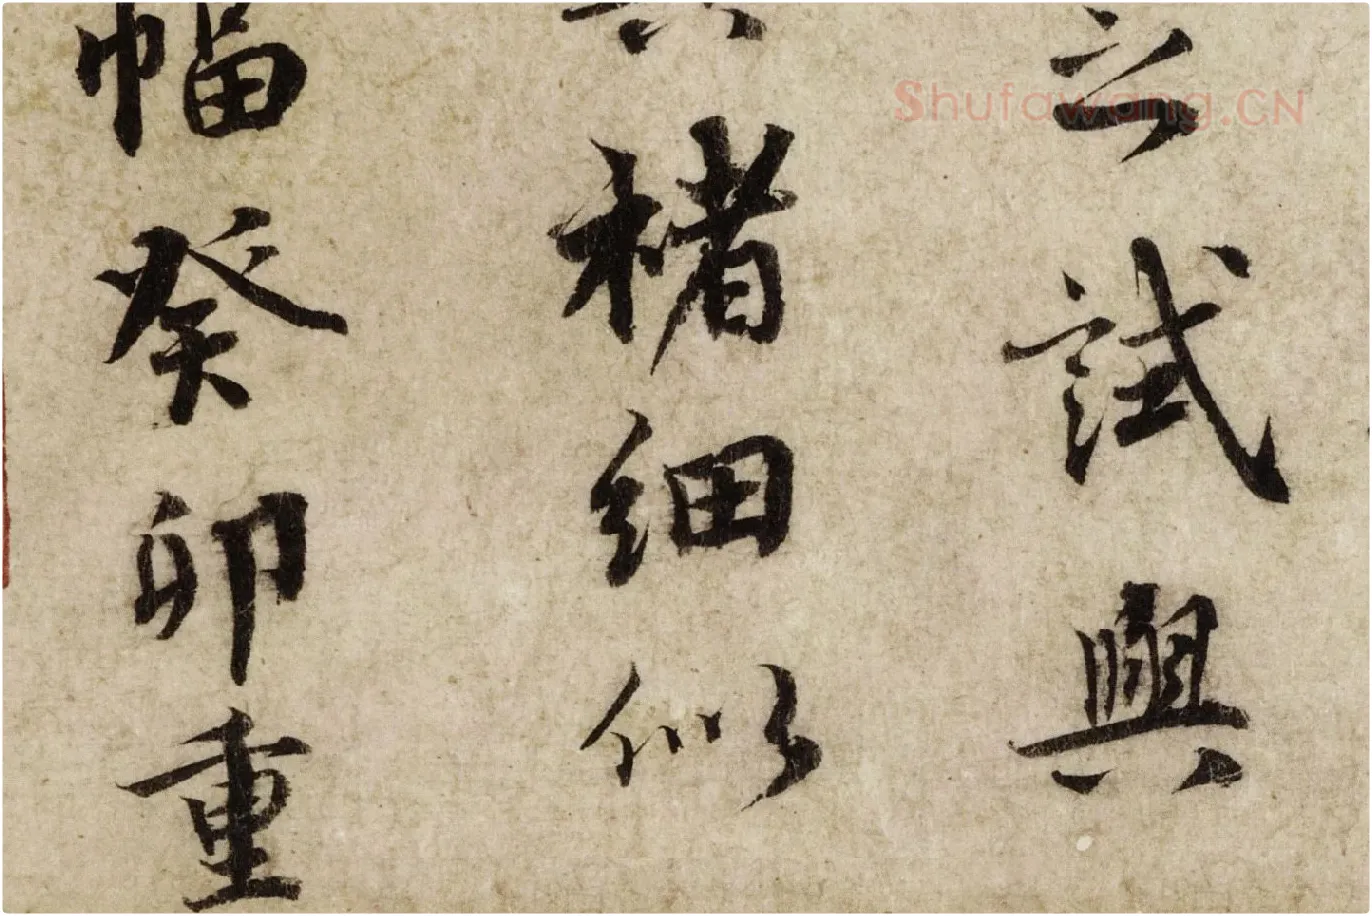 云試興
楮細似
幅癸卯重
Shufawang.CN